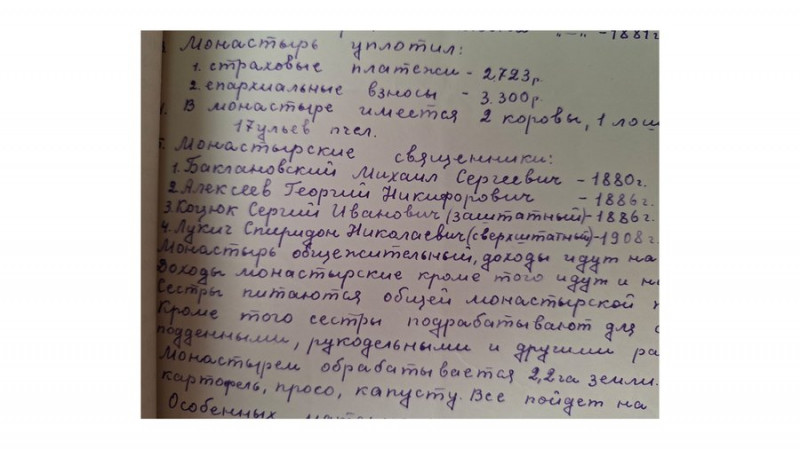 "-" -1881г
Монастырь уплотил:
1. страховые платежи - 2.723р.
2. епархиальные взносы - 3.300р.
В монастыре имеется 2 коровы, 1 лош
17 ульев пчел.
Монастырские священники:
1. Баклановский Михаил Сергеевич - 1880г.
2. Алексеев Георгий Никифорович - 1886г.
3. Коцюк Сергий Иванович (заштатный) - 1886г.
4. Лукич Спиридон Николаевич (сверхштатный) - 1908г.
Монастырь общежительный, доходы идут на
Доходы монастырские кроме того идут и н
Сестры питаются общей монастырской
Кроме того сестры подрабатывают для
подденными, рукодельными и другими ра
Монастырем обрабатывается 2,2га земли.
картофель, просо, капусту. Все пойдет на
Особенных